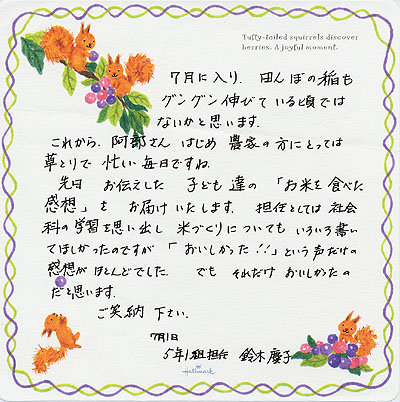 Tufty-tailed squirrels discover
berries. A joyful moment.
7月に入り、田んぼの稲も
グングン伸びている頃では
ないかと思います。
これから、阿部さんはじめ 農家の方にとっては
草とりで 忙しい毎日ですね。
先日 お伝えした 子ども達の 「お米を食べた
感想」を お届けいたします。担任としては 社会
科の学習を思い出し 米づくりについても いろいろ書い
てほしかったのですが 「おいしかった!!」という声だけの
感想が ほとんどでした。 でも それだけ おいしかったの
だと思います。
ご笑納 下さい。
7月1日
5年1組担任 鈴木慶子
Hallmark